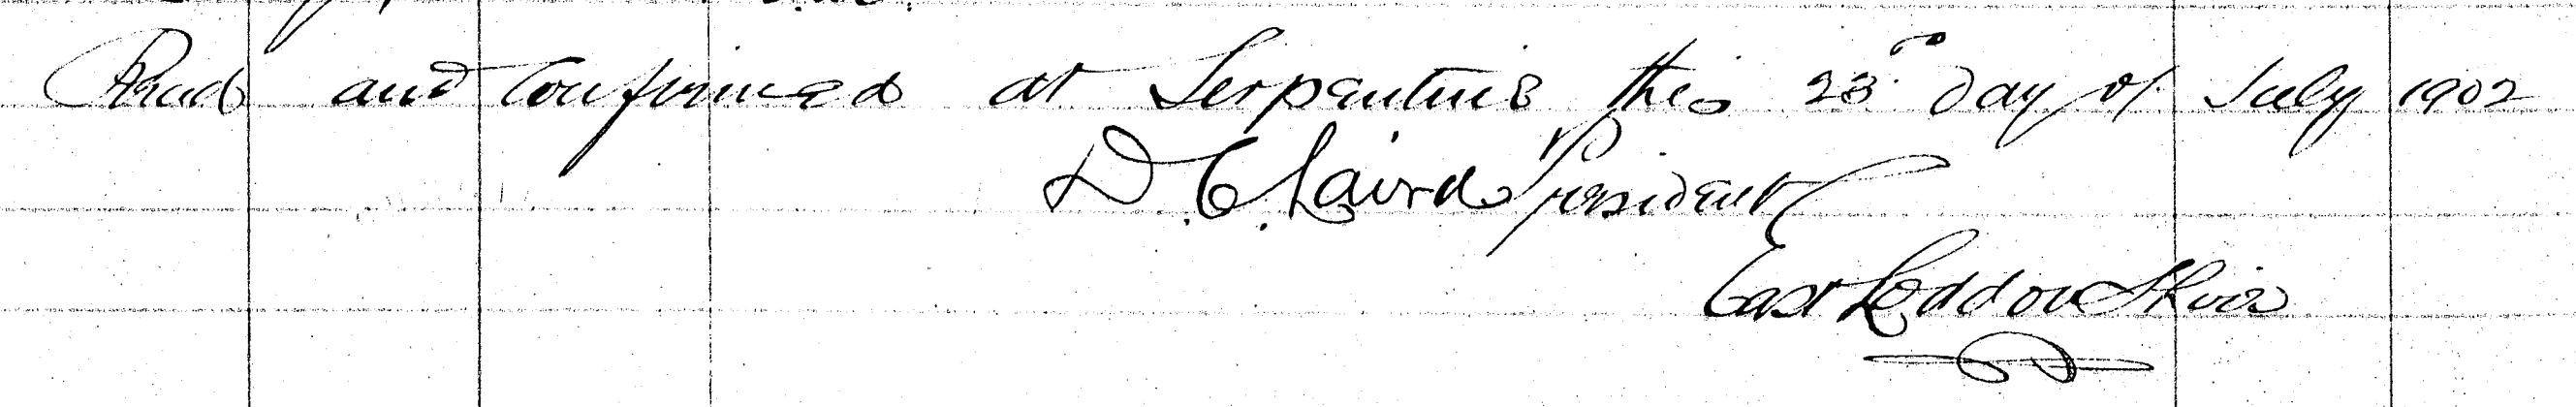 Read and Confirmed at Serpentine this 23rd day of July 1902
D. C. Laird President
East Loddon Shire